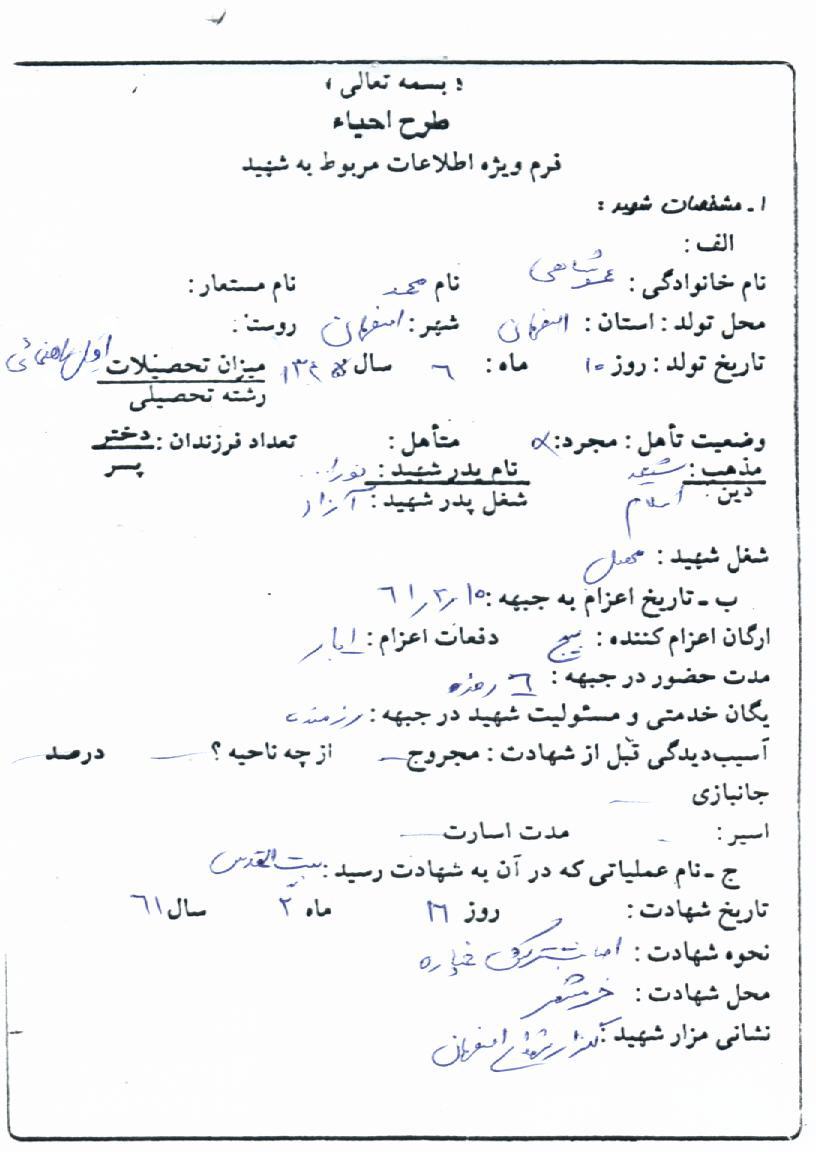 « بسمه تعالی »
طرح احیاء
فرم ویژه اطلاعات مربوط به شهید
۱ ـ مشخصات شهید :
الف :
نام خانوادگی : نام محمد نام مستعار :
محل تولد : استان : اصفهان شهر : اصفهان روستا :
تاریخ تولد : روز ۱۰ ماه : ۶ سال میزان تحصیلات اول راهنمائی
رشته تحصیلی
وضعیت تأهل : مجرد : متأهل : تعداد فرزندان : دختر
پسر
مذهب : شیعه نام پدر شهید :
دین : اسلام شغل پدر شهید : آزاد
شغل شهید : محصل
ب ـ تاریخ اعزام به جبهه : ۱۰ ر ۲ ر ۶۱
ارگان اعزام کننده : بسیج دفعات اعزام : ۱ بار
مدت حضور در جبهه : ۶ روزه
یگان خدمتی و مسئولیت شهید در جبهه : رزمنده
آسیب‌دیدگی قبل از شهادت : مجروح — از چه ناحیه ؟ — درصد —
جانبازی —
اسیر : مدت اسارت —
ج ـ نام عملیاتی که در آن به شهادت رسید : بیت‌المقدس
تاریخ شهادت : روز ۱۶ ماه ۲ سال ۶۱
نحوه شهادت : اصابت ترکش خمپاره
محل شهادت : خرمشهر
نشانی مزار شهید : گلزار شهدای اصفهان